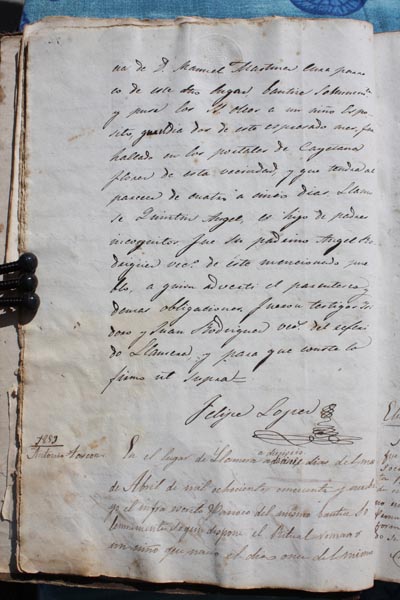 na de D. Manuel Martinez Cura parro
co de este dho lugar bautice solemnemte
y puse los Stos oleos a un niño Espo
sito, que el dia dos de este espresado mes, fue
hallado en los portales de Cayetana
florez de esta vecindad, y que tendria al
parecer de cuatro a seis dias. Llamo
se Quintin Angel, es hijo de padres
incognitos. fue Su padrino Angel Ro
driguez veco. de este mencionado pue
blo, a quien adverti el parentesco y
demas obligaciones. fueron testigos
y Juan Rodriguez veco del referi
do Llamera, y para que conste lo
firmo ut supra=
Felipe Lopez
Antonio
En el lugar de Llamera a dias del mes
de Abril de mil ochocientos cincuenta y
yo el infraescrito Parroco del mismo bautice So
lemnemente segun dispone el Ritual romano a
un niño que nacio el dia once del mismo